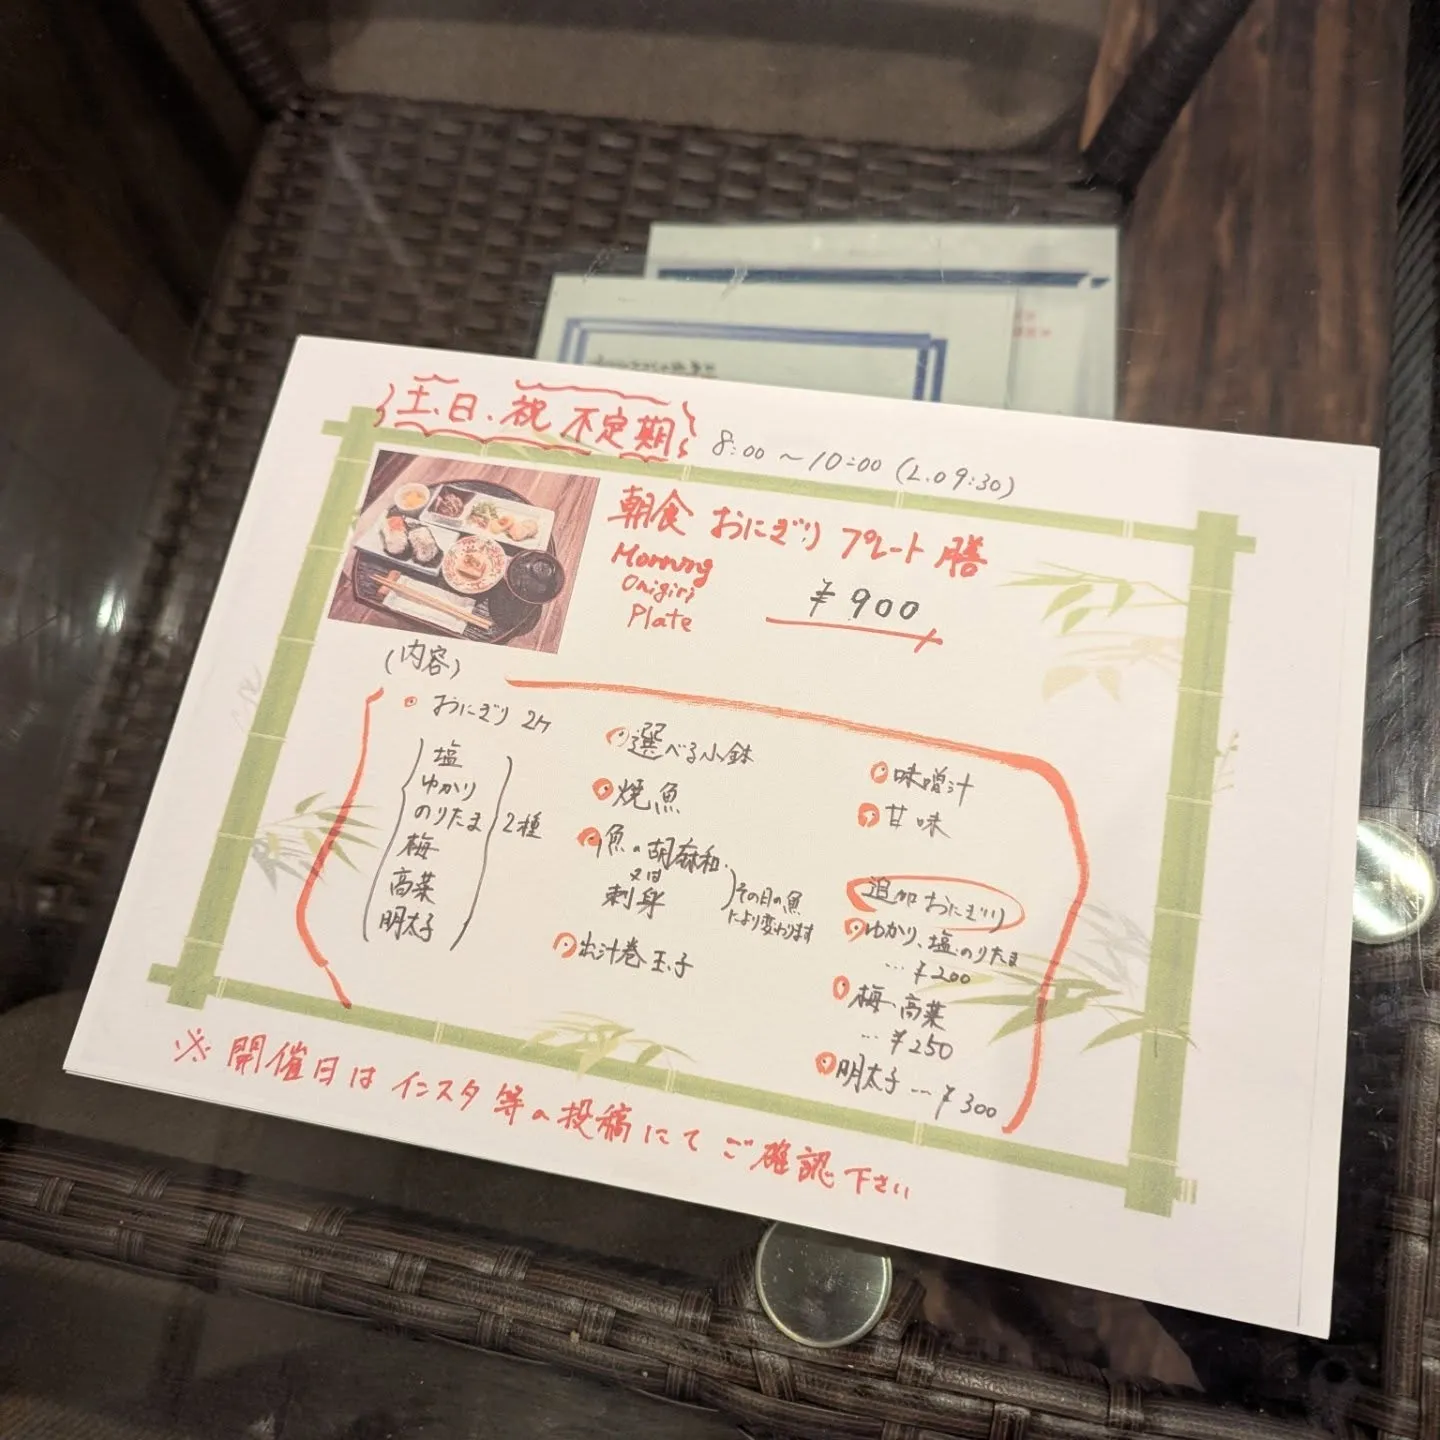 土、日、祝 不定期
8:00 〜 10:00 (L.O 9:30)
朝食 おにぎり プレート 膳
Morning
Onigiri
Plate
¥900
(内容)
おにぎり 2ヶ
塩
ゆかり
のりたま
梅
高菜
明太子
2種
選べる小鉢
焼魚
魚の胡麻和
又は
刺身
その日の魚
により変わります
出汁巻玉子
味噌汁
甘味
追加おにぎり
ゆかり、塩、のりたま
… ¥200
梅、高菜
… ¥250
明太子 … ¥300
※ 開催日は インスタ 等の投稿にて ご確認下さい